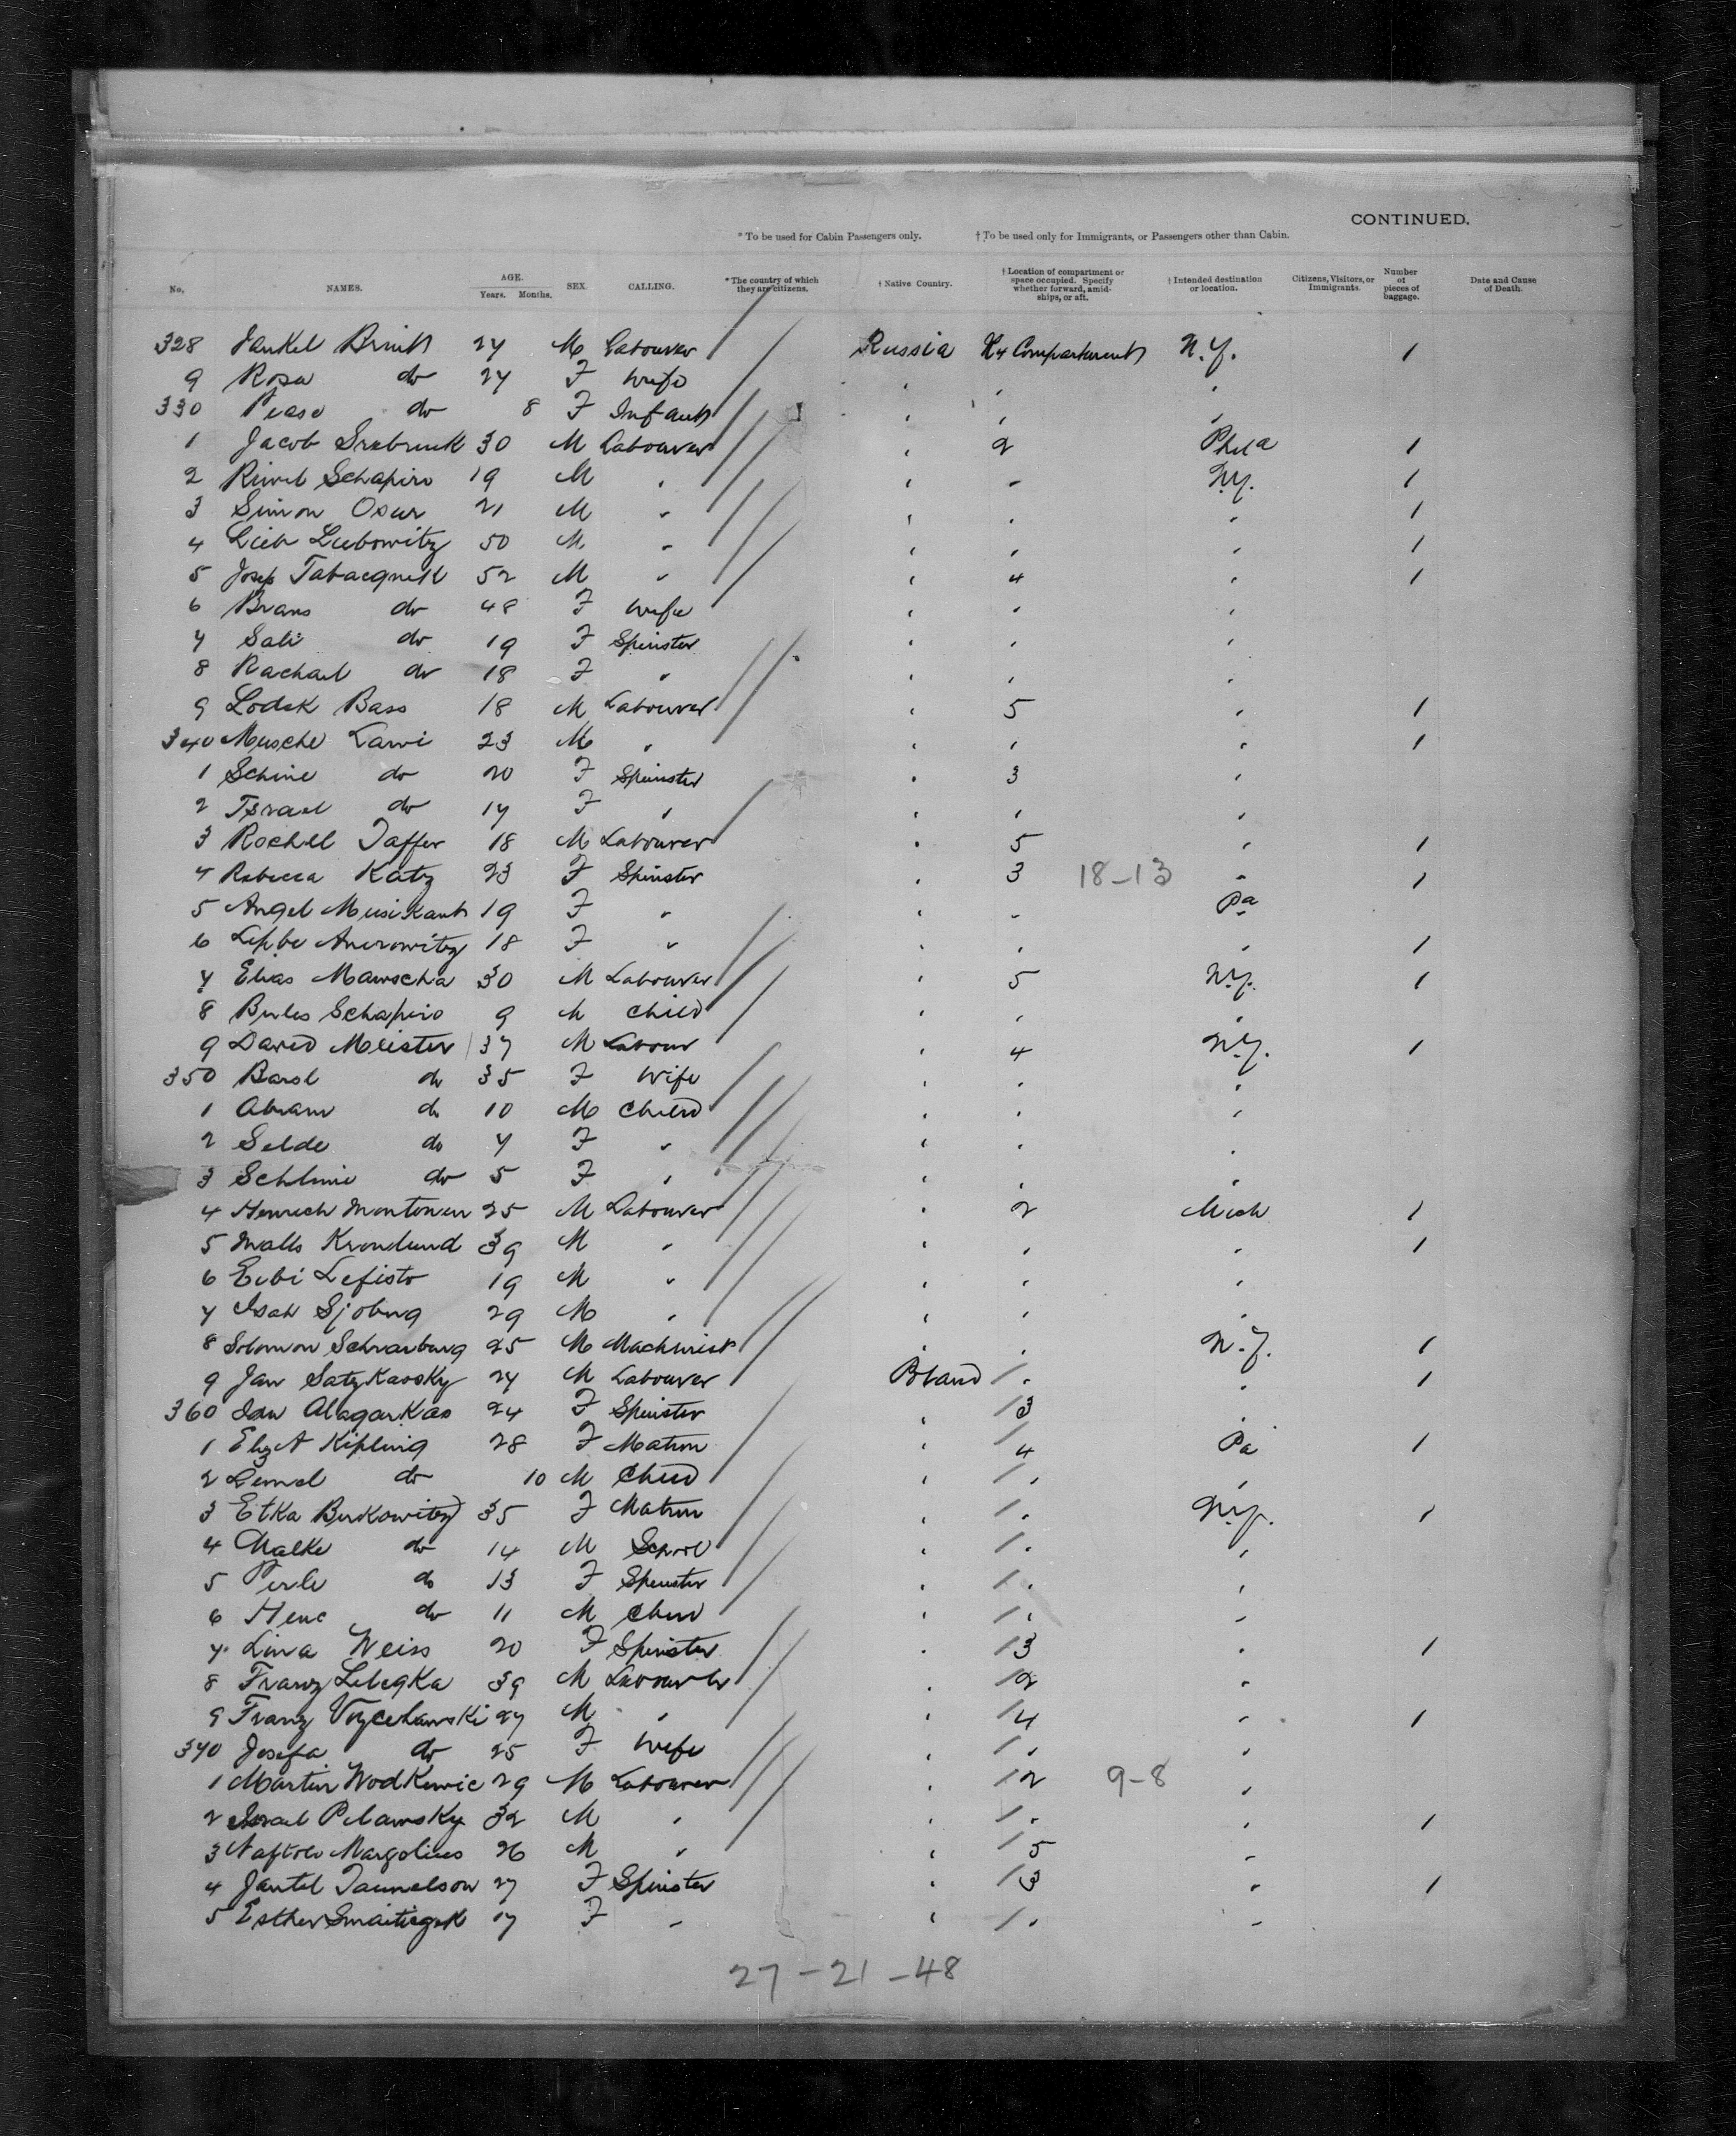 CONTINUED.
* To be used for Cabin Passengers only. † To be used only for Immigrants, or Passengers other than Cabin.
No. NAMES. AGE. Years. Months. SEX. CALLING. * The country of which they are citizens. † Native Country. † Location of compartment or space occupied. Specify whether forward, amidships, or aft. † Intended destination or location. Citizens, Visitors, or Immigrants. Number of pieces of baggage. Date and Cause of Death.
328 Jankel 27 M Labourer Russia Compartment N.Y. 1
9 Rosa do 27 F Wife
330 do 8 F Infant
1 Jacob 30 M Labourer 2 Phila 1
2 Schapiro 19 M " N.Y. 1
3 Simon Osur 21 M " 1
4 Lieb Liebowitz 50 M " 1
5 Josep Tabacqnik 52 M " 4 1
6 Brans do 48 F Wife
7 Sali do 19 F Spinster
8 Rachael do 18 F "
9 Lodek Bass 18 M Labourer 5 1
340 Musche Lawi 23 M " 1
1 Schine do 20 F Spinster 3
2 Israel do 17 F "
3 Rochel Taffer 18 M Labourer 5 1
4 Rebecca Katz 23 F Spinster 3 18-13 " 1
5 Angel Musikant 19 F " Pa
6 18 F " 1
7 Elias Mawscha 30 M Labourer 5 N.Y. 1
8 Schapiro 9 M Child
9 David Meister 37 M Labour 4 N.Y. 1
350 Basl do 35 F Wife
1 Abram do 10 M Child
2 Selde do 7 F "
3 Schlimi do 5 F "
4 Henrich 25 M Labourer 2 Mich 1
5 Matts Kronlund 39 M " 1
6 Lefisto 19 M "
7 Isak Sjoburg 29 M "
8 Solomon 25 M Machinist N.Y. 1
9 Jan 27 M Labourer 1
360 24 F Spinster 3
1 Elizt Kipling 28 F Matron 4 Pa 1
2 do 10 M Child
3 Etka Berkowitz 35 F Matron N.Y. 1
4 Malke do 14 M
5 Perle do 13 F Spinster
6 do 11 M Child
7 Lina Weiss 20 F Spinster 3 1
8 Franz 39 M Labourer 2
9 Franz 27 M " 4 1
370 Josefa do 25 F Wife
1 Martin Wodkewic 29 M Labourer 2 9-8
2 Israel Pilawsky 32 M " 1
3 Naftole Margolius 26 M " 5
4 27 F Spinster 3 1
5 Esther 17 F "
27-21-48